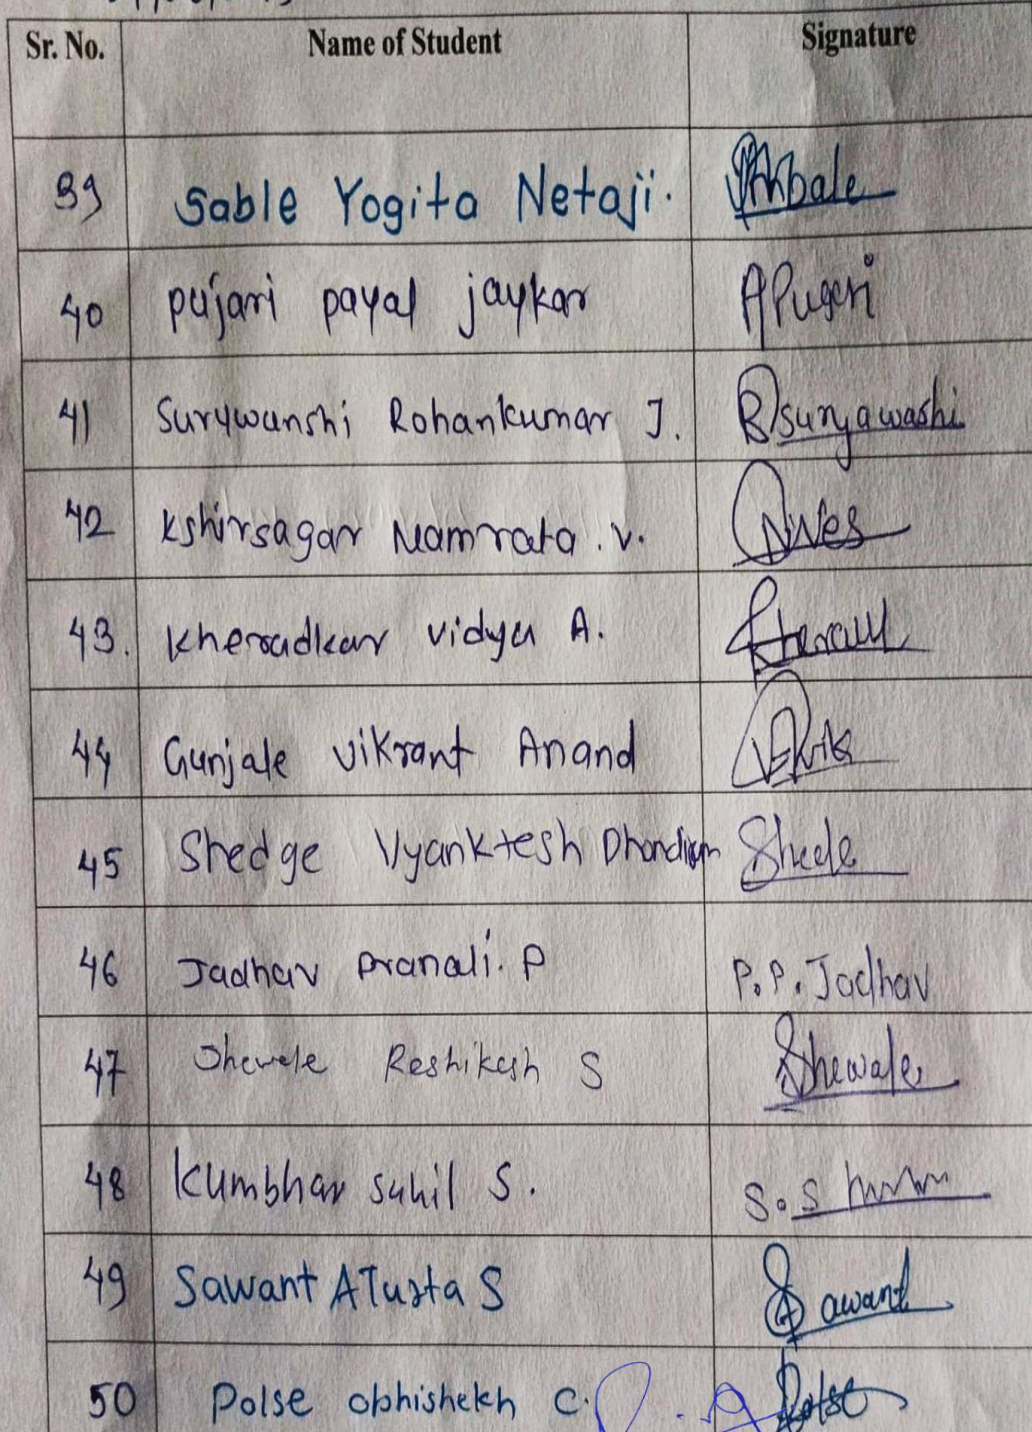 Sr. No. Name of Student Signature
39 Sable Yogita Netaji.
40 pujari payal jaykar APujari
41 Surywanshi Rohankumar J. R suryawashi
42 Kshirsagar Namrata .V.
43. Kheradkar vidya A.
44 Gunjale Vikrant Anand
45 Shedge Vyanktesh Dhondiram
46 Jadhav Pranali. P P.P. Jadhav
47 Shewale Reshikesh S Shewale
48 Kumbhar Sahil S. S.S
49 Sawant S Sawant
50 Polse abhishekh C. Polse